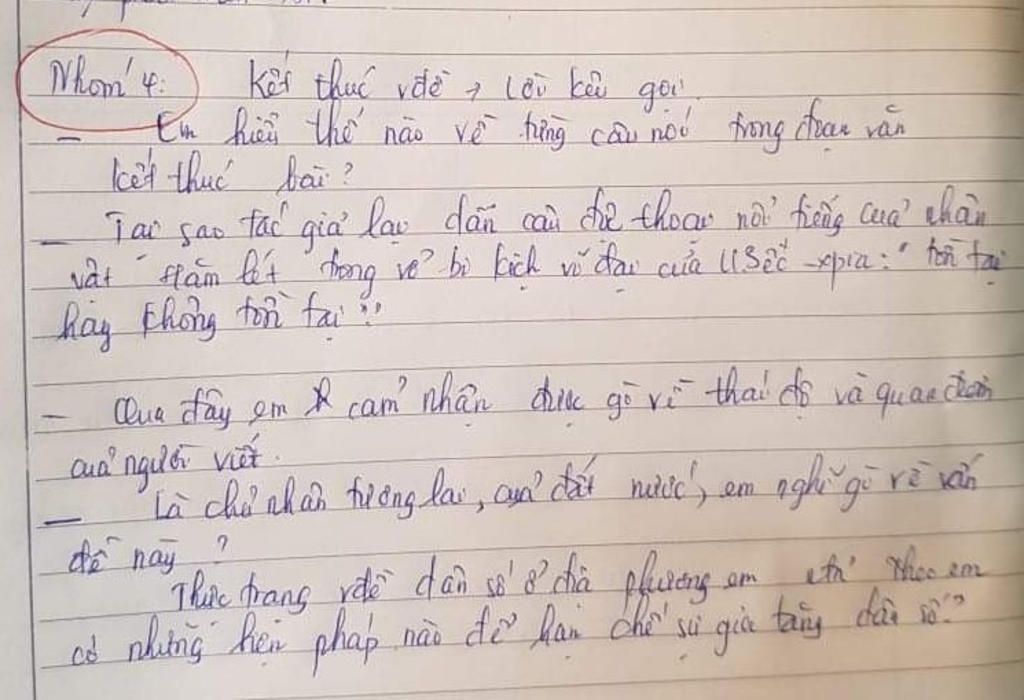 Nhóm 4: Kết thúc vđề → lời kêu gọi.
- Em hiểu thế nào về từng câu nói trong đoạn văn
kết thúc bài?
- Tại sao tác giả lại dẫn câu độc thoại nổi tiếng của nhân
vật "Hăm lét" trong vở bi kịch vĩ đại của U Sếc-xpia: "tồn tại
hay không tồn tại"?
- Qua đây em cảm nhận được gì về thái độ và quan điểm
của người viết.
- Là chủ nhân tương lai, của đất nước, em nghĩ gì về vấn
đề này?
Thực trạng vđề dân số ở địa phương em ntn? Theo em
có những biện pháp nào để hạn chế sự gia tăng dân số?